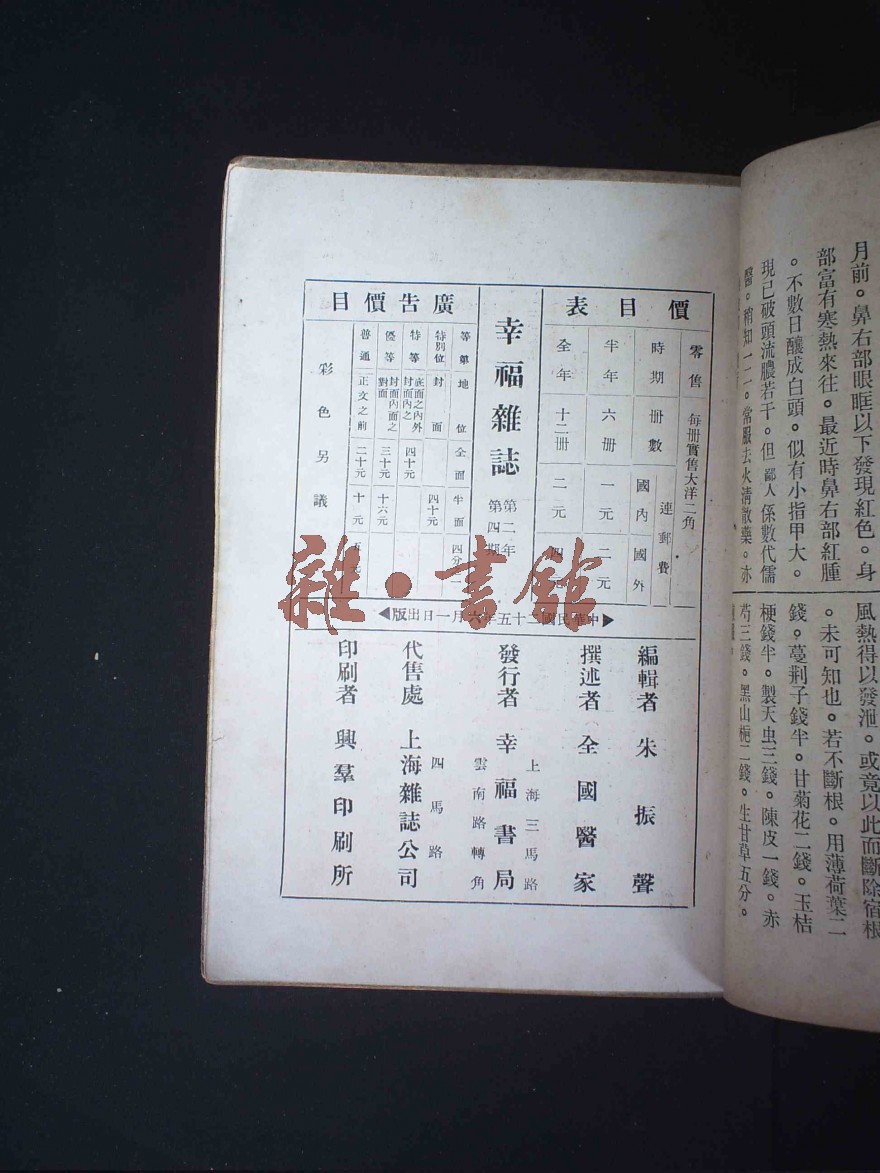 月前。鼻右部眼眶以下發現紅色。身
部富有寒熱來往。最近時鼻右部紅腫
。不數日釀成白頭。似有小指甲大。
現已破頭流膿若干。但鄙人係數代儒
醫。稍知一二。常服去火清散藥。亦
風熱得以發泄。或竟以此而斷除宿根
。未可知也。若不斷根。用薄荷葉二
錢。蔓荆子錢半。甘菊花二錢。玉桔
梗錢半。製天虫三錢。陳皮一錢。赤
芍三錢。黑山梔二錢。生甘草五分。
價目表
零售 每册實售大洋二角
時期 册數 連郵費 國內 國外
半年 六册 一元 二元
全年 十二册 二元 四元
幸福雜誌
第二年
第四期
廣告價目
等第 地位 全面 半面 四分一
特別位 封面 四十元
特等 底面之內外 封面內之 四十元
優等 封面內面之 對面 三十元 十六元
普通 正文之前 二十元 十元 五元
彩色另議
中華民國二十五年六月一日出版
編輯者 朱振聲
撰述者 全國醫家
發行者 幸福書局
上海三馬路
雲南路轉角
代售處 上海雜誌公司
四馬路
印刷者 興羣印刷所
雜·書館